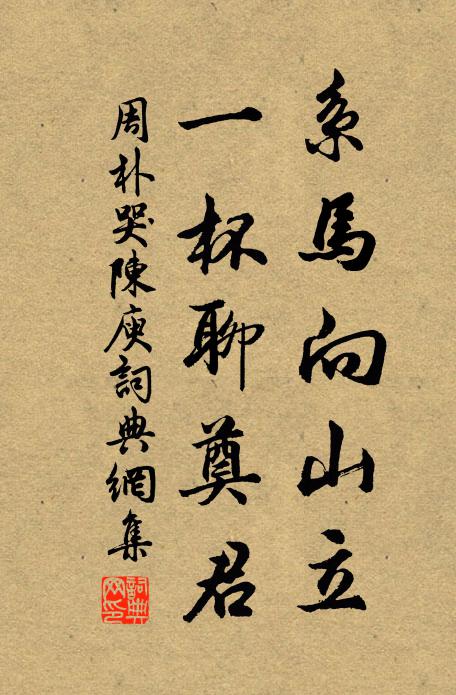 系馬向山立
一杯聊奠君
周朴哭陳庾詞典網集
詞典网印